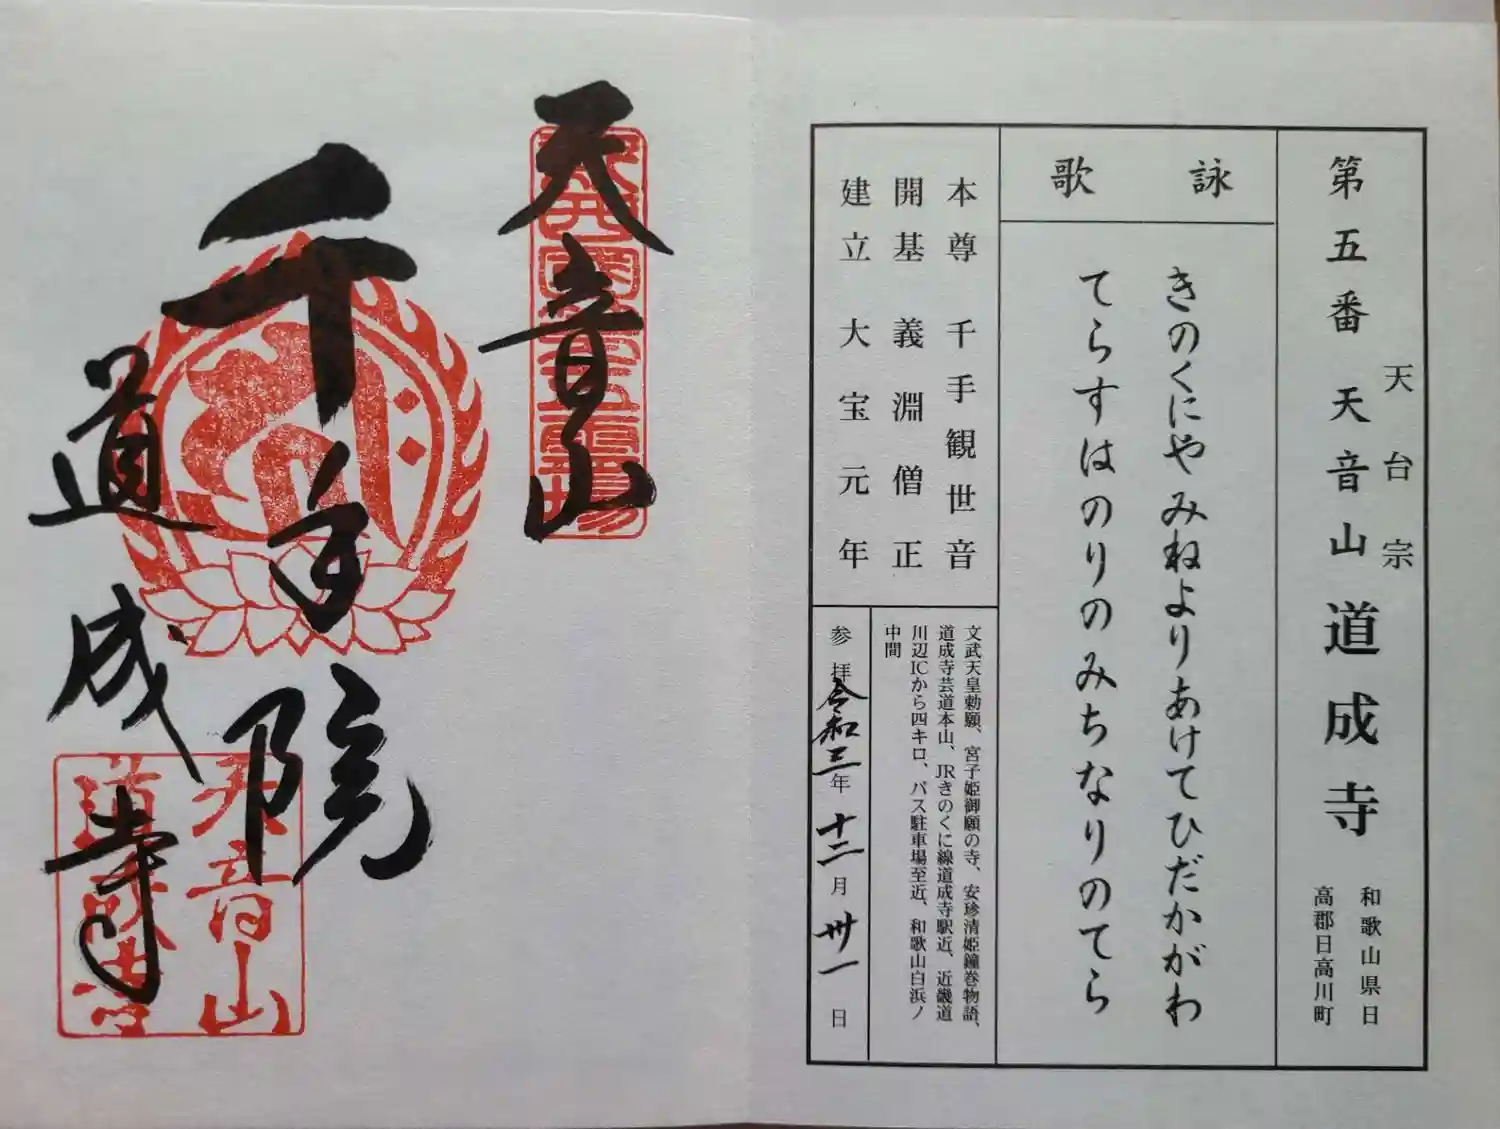 第五番 天音山 道成寺
天台宗
和歌山県日
高郡日高川町
詠歌
きのくにや みねよりあけてひだかがわ
てらすはのりのみちなりのてら
本尊 千手観世音
開基 義淵僧正
建立 大宝元年
文武天皇勅願、宮子姫御願の寺、安珍清姫鐘巻物語、
道成寺芸道本山、JRきのくに線道成寺駅近、近畿道
川辺ICから四キロ、バス駐車場至近、和歌山白浜ノ
中間
参拝 令和三年 十二月 卅一日
天音山
千手院
道成寺
天音山